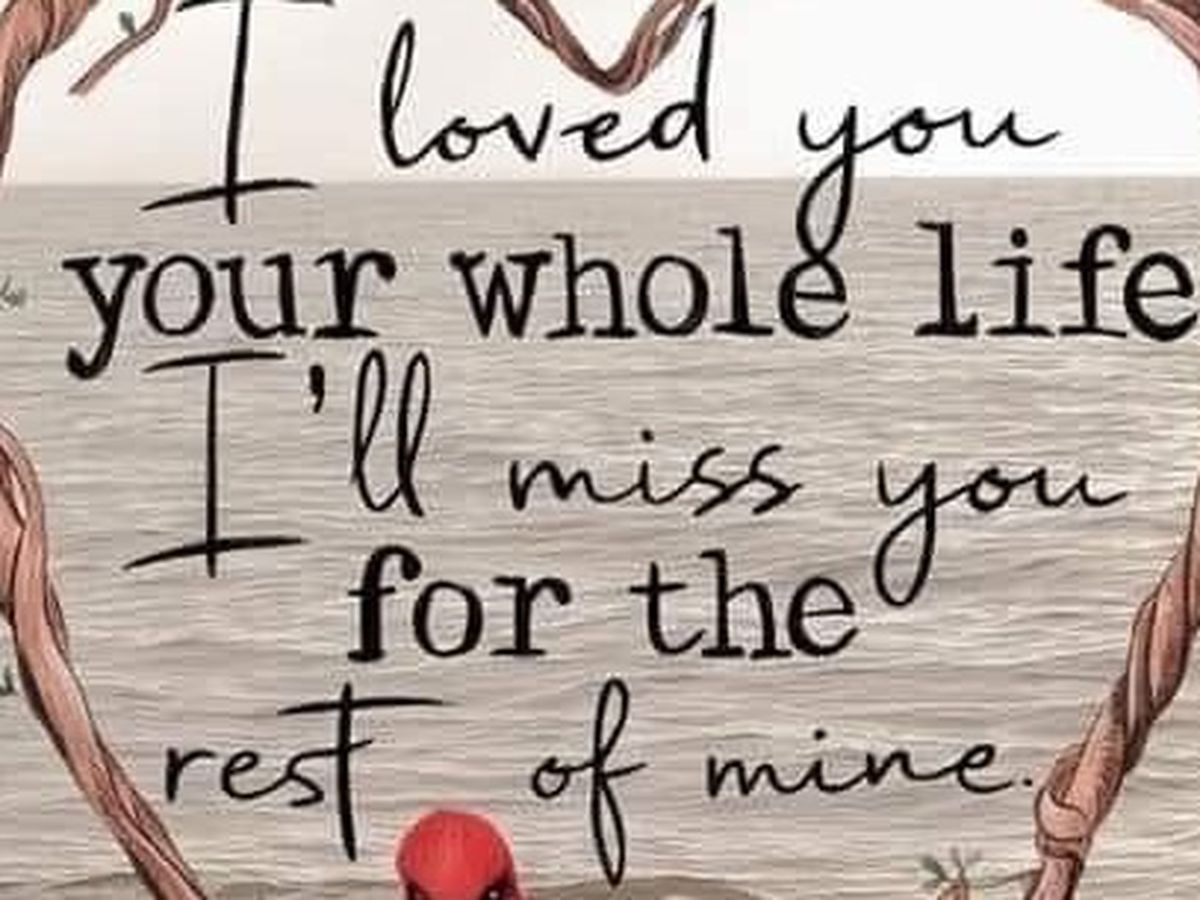 I loved you
your whole life
I'll miss you
for the
rest of mine.